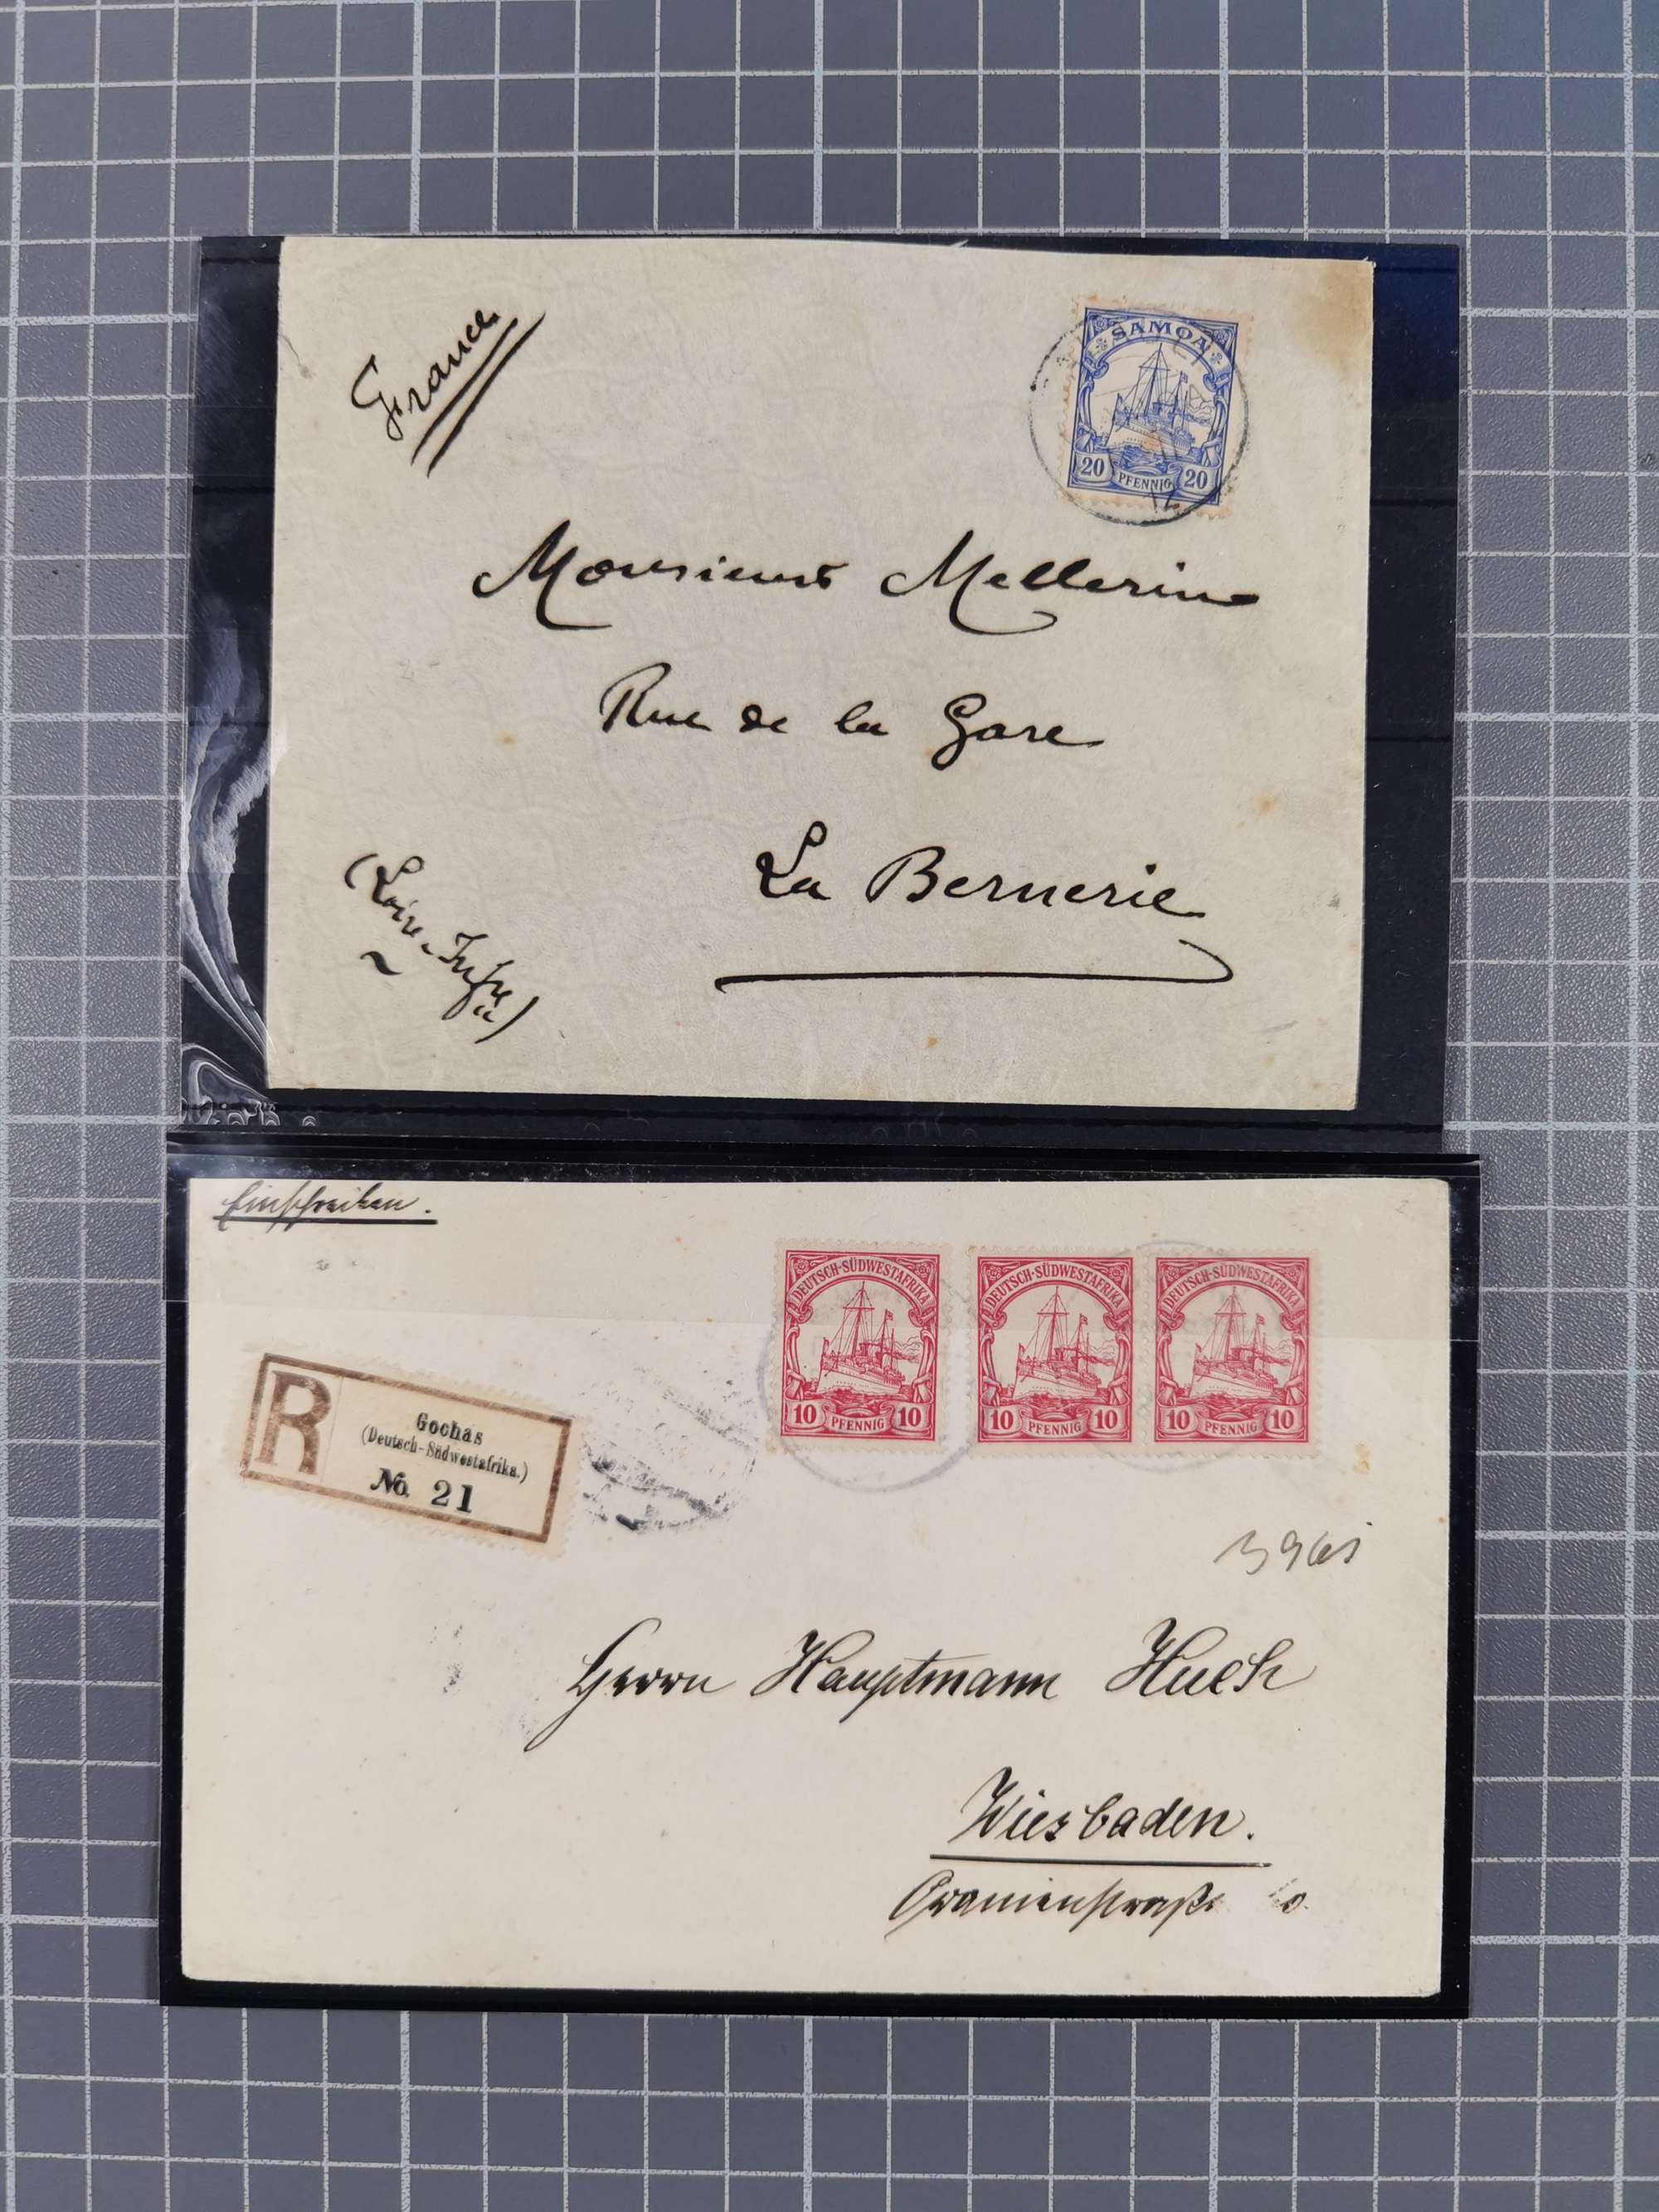 France
SAMOA
20 PFENNIG 20
Monsieur Mellerin
Rue de la Gare
La Bernerie
(Loire-Infre)
Einschreiben.
DEUTSCH-SÜDWESTAFRIKA
10 PFENNIG 10
DEUTSCH-SÜDWESTAFRIKA
10 PFENNIG 10
DEUTSCH-SÜDWESTAFRIKA
10 PFENNIG 10
R
Gochas
(Deutsch-Südwestafrika.)
No. 21
Herrn Hauptmann Huch
Wiesbaden.
Oranienstraße